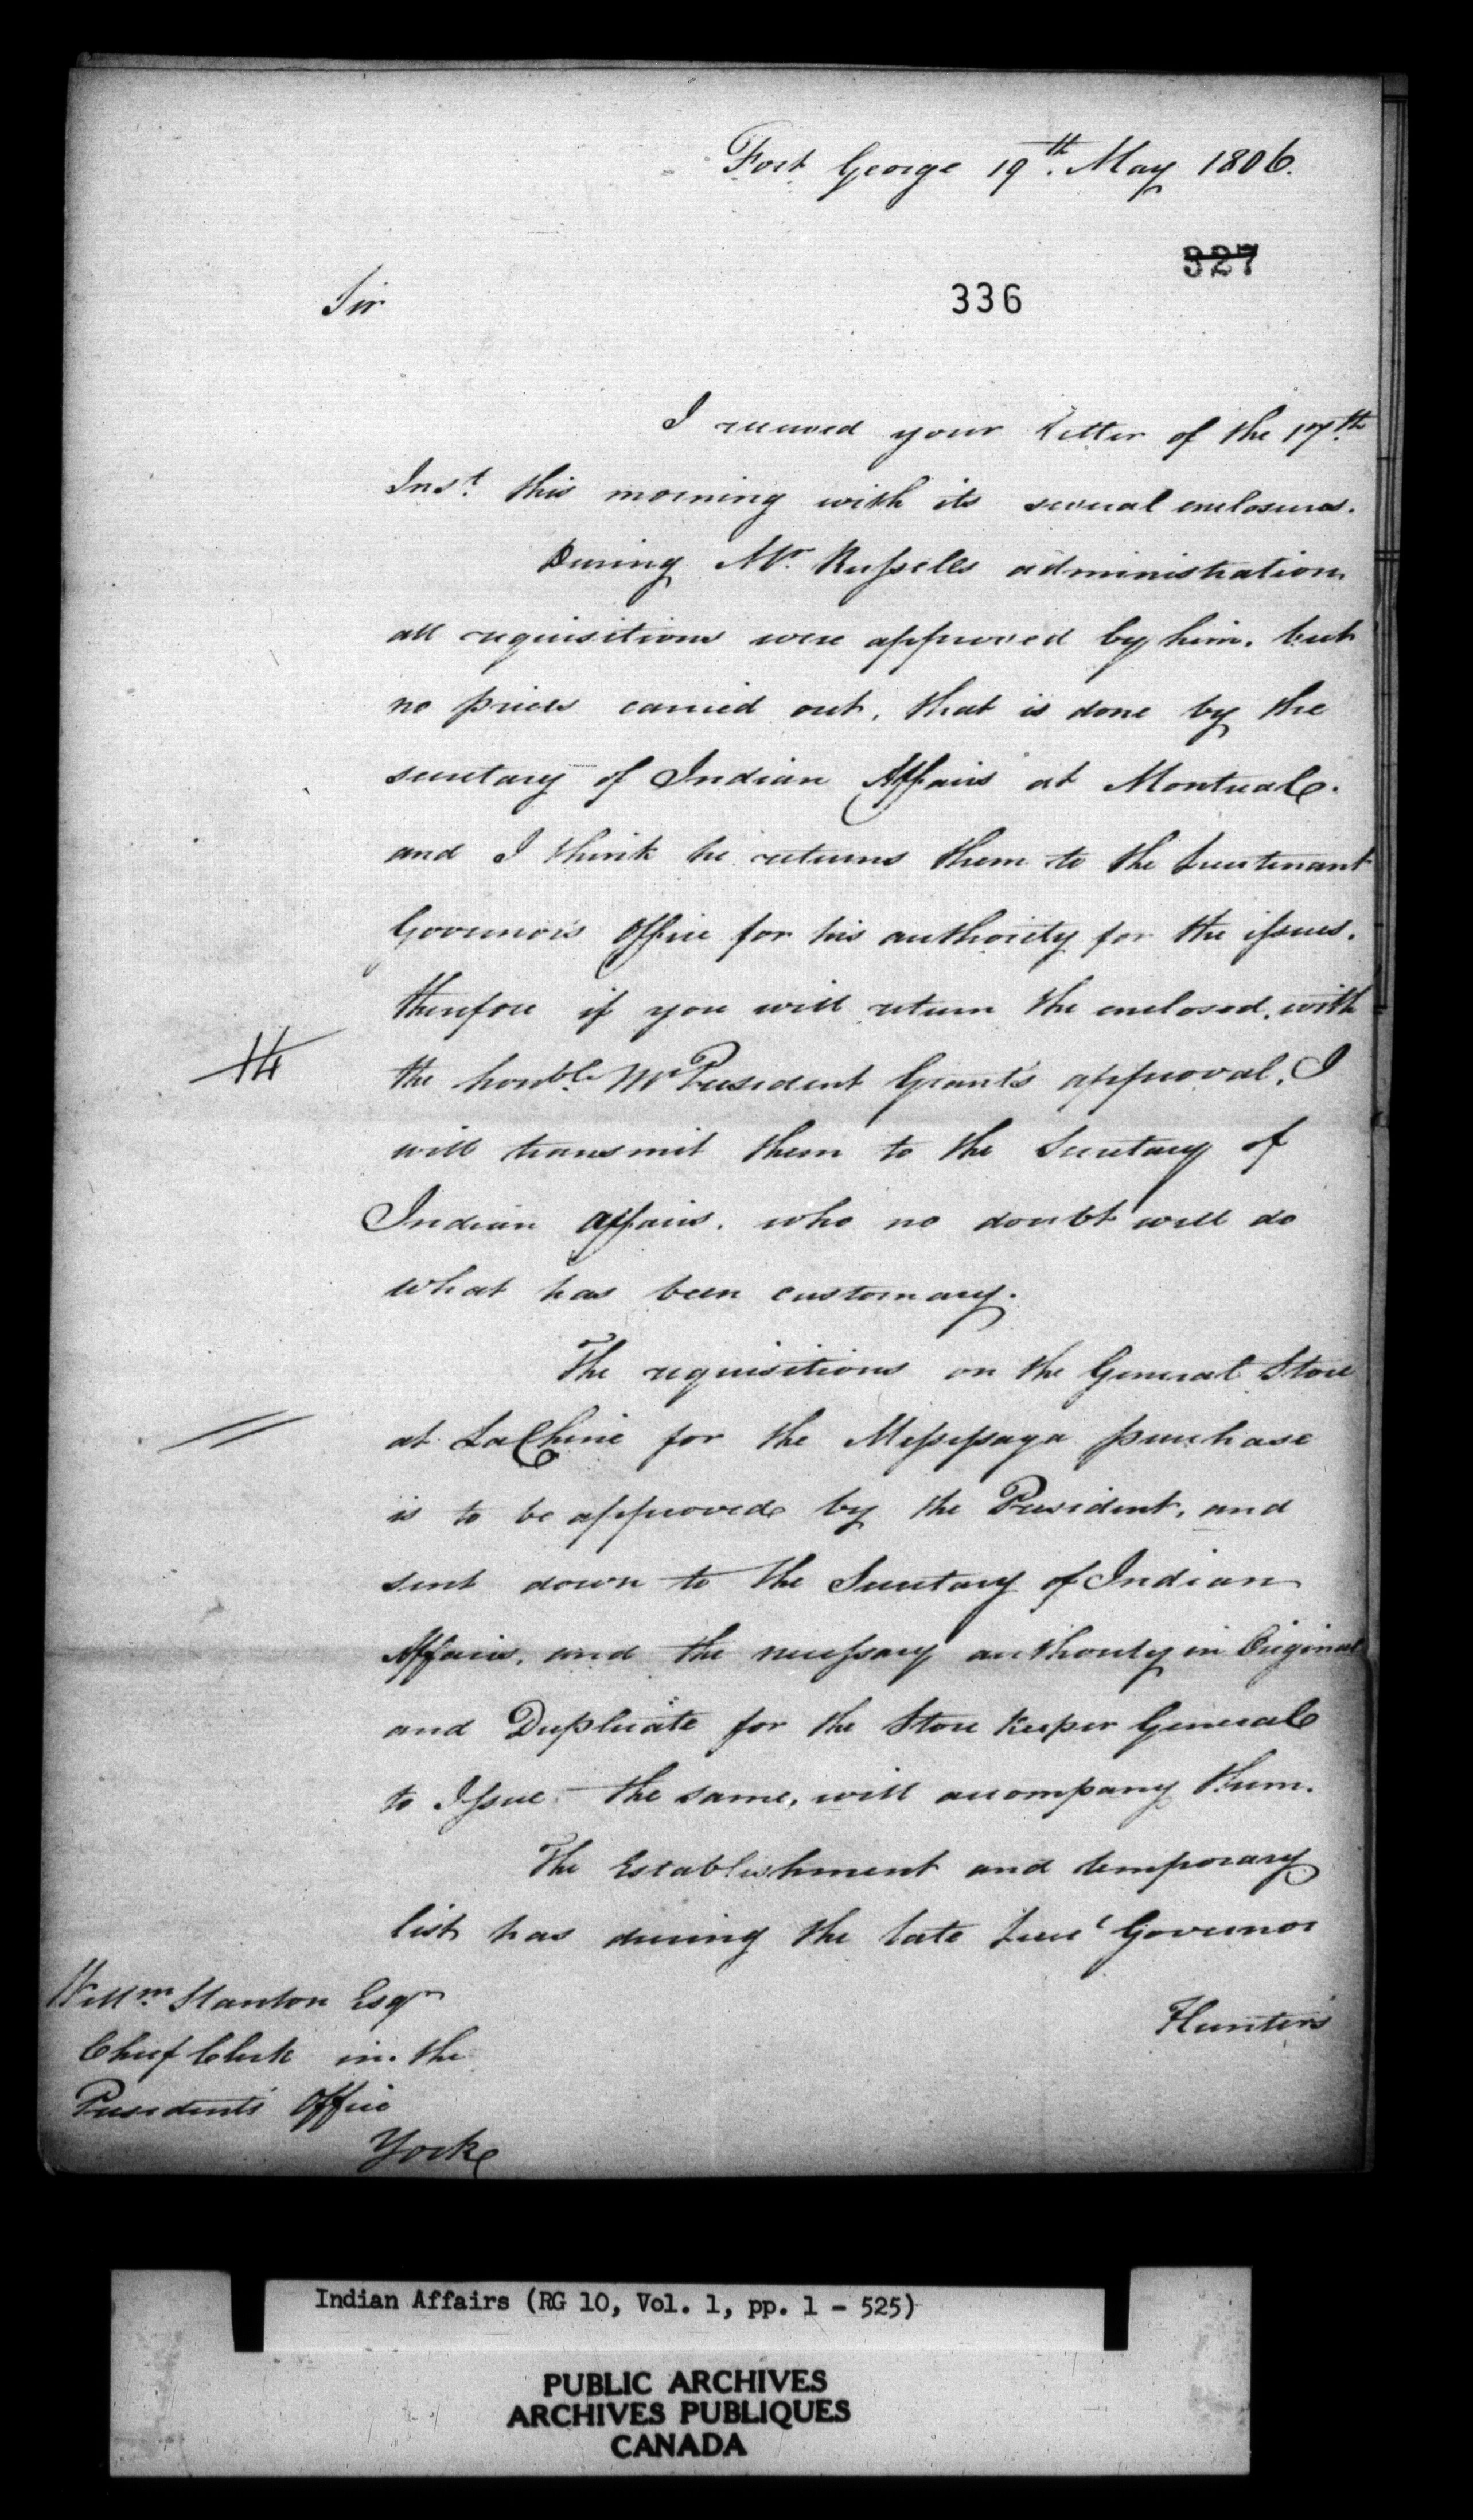 Fort George 19th. May 1806.
327
336
Sir
I received your Letter of the 17th.
Inst. this morning with its several enclosures.
During Mr. Russells administration
all requisitions were approved by him. but
no prices carried out, that is done by the
secretary of Indian Affairs at Montreal.
and I think he returns them to the Lieutenant
Governors Office for his authority for the issues.
therefore if you will return the enclosed. with
the honble. Mr President Grants approval. I
will transmit them to the Secretary of
Indian affairs. who no doubt will do
what has been customary.
The requisitions on the General Store
at LaChine for the Messessaga purchase
is to be approved by the President, and
sent down to the Secretary of Indian
Affairs, and the necessary authority in Original
and Duplicate for the Store Keeper General
to Issue the same, will accompany them.
The Establishment and temporary
list has during the late Lieut Governor
Hunters
Willm. Stanton Esqr
Chief Clerk in the
Presidents Office
York
Indian Affairs (RG 10, Vol. 1, pp. 1 - 525)
PUBLIC ARCHIVES
ARCHIVES PUBLIQUES
CANADA